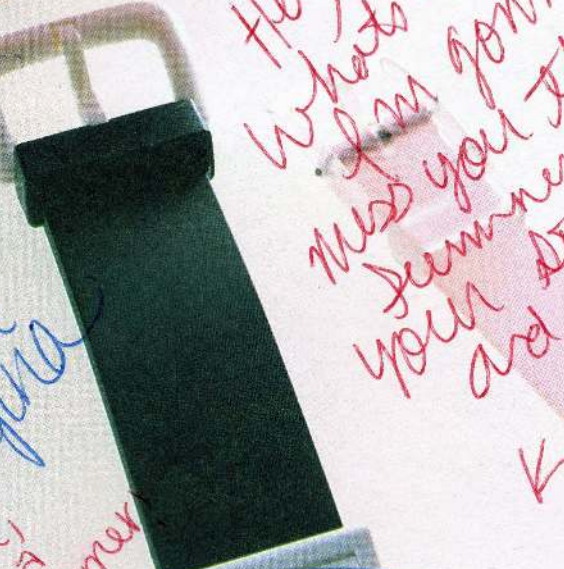 whats
I'm gonn
miss you th
summe
your s
and
K
gina
mer!